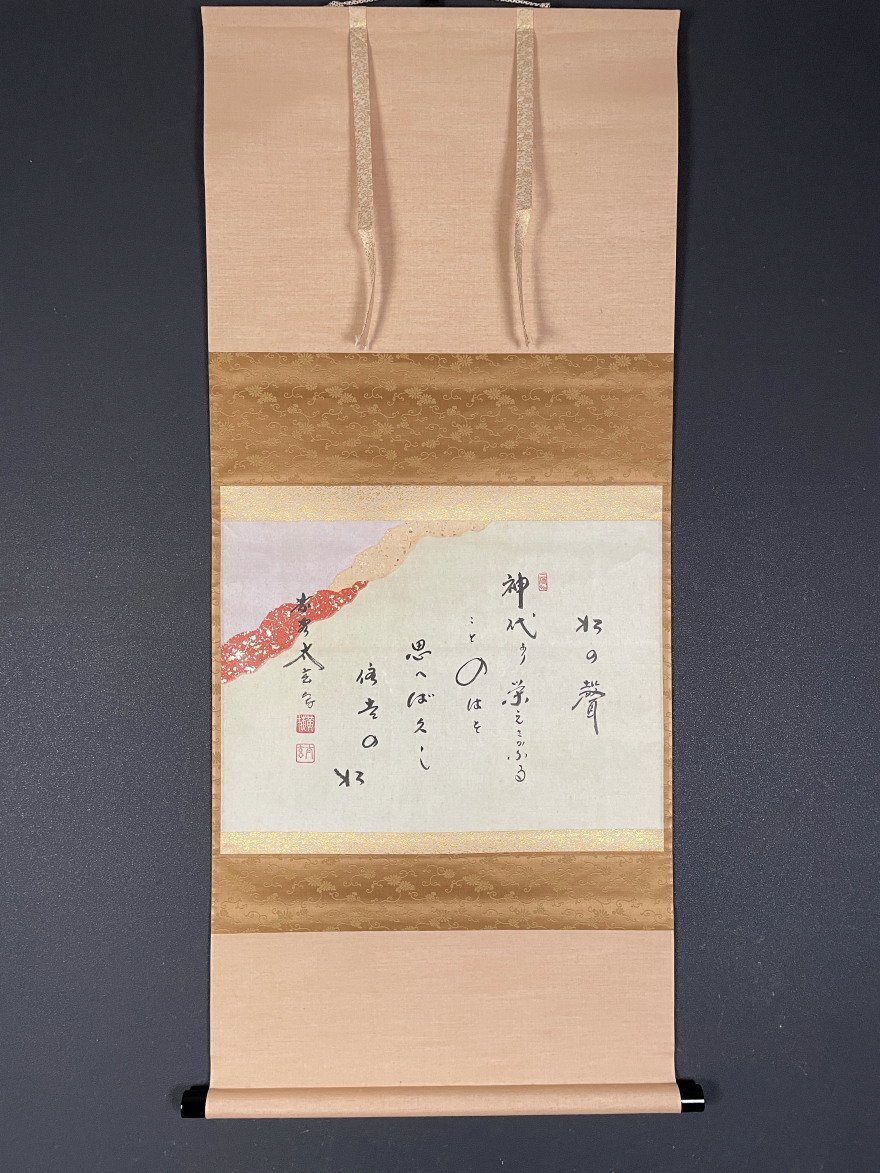 松の聲
神代より栄え
ことのはを
思へば久し
住吉の松